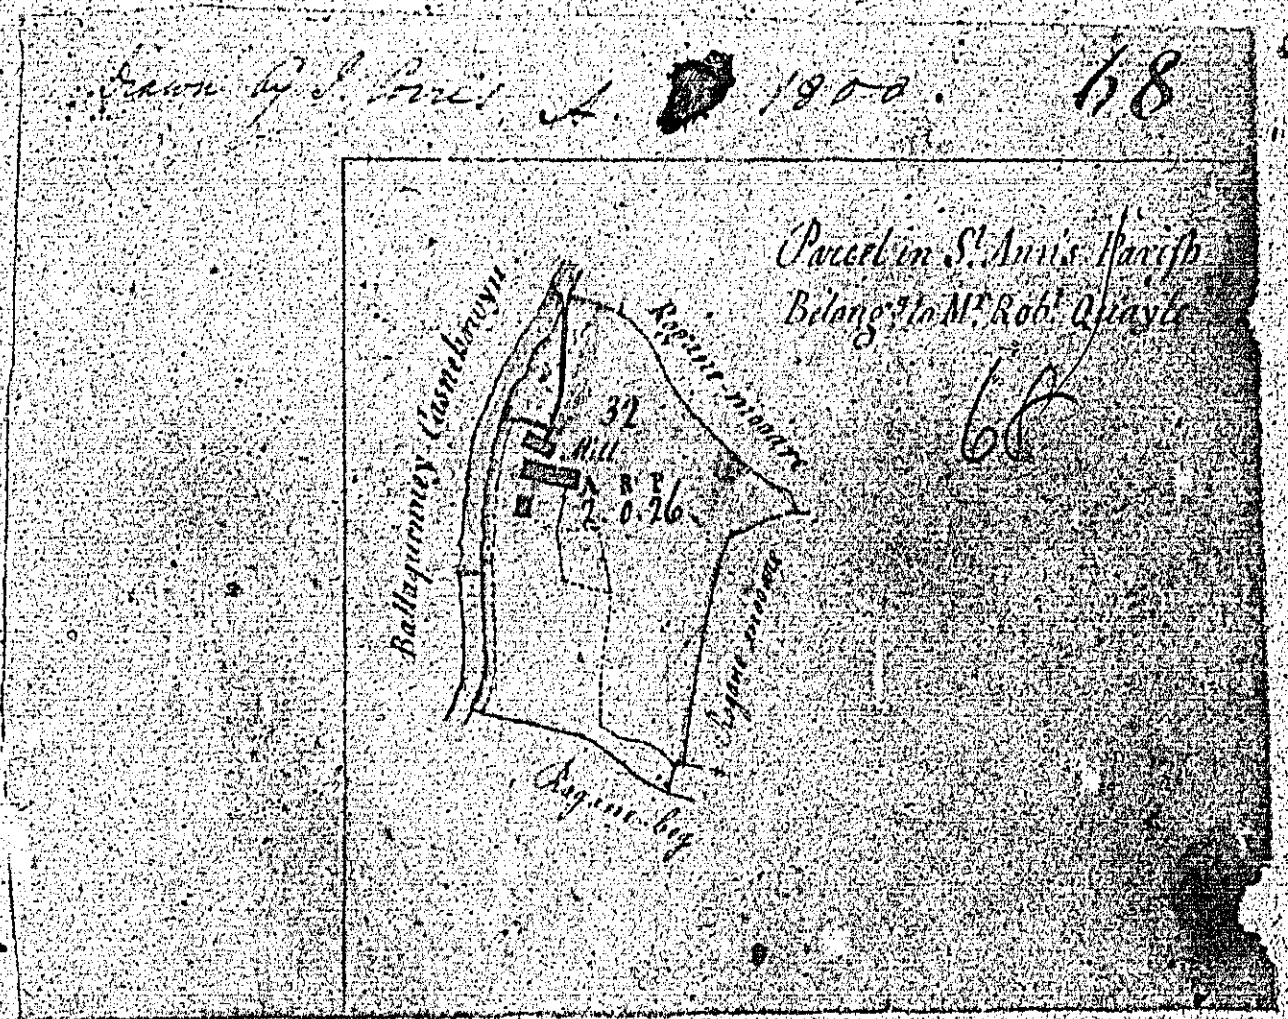 Drawn by J. Corris A. 1800.
68
Parcel in St. Ann's Parish
Belong.g to Mr. Robt. Quayle
68
Ballaquinney Casnahowyn
Rogane mooare
32
Mill
A R P
2. 0. 26.
Rogane mooare
Rogane beg